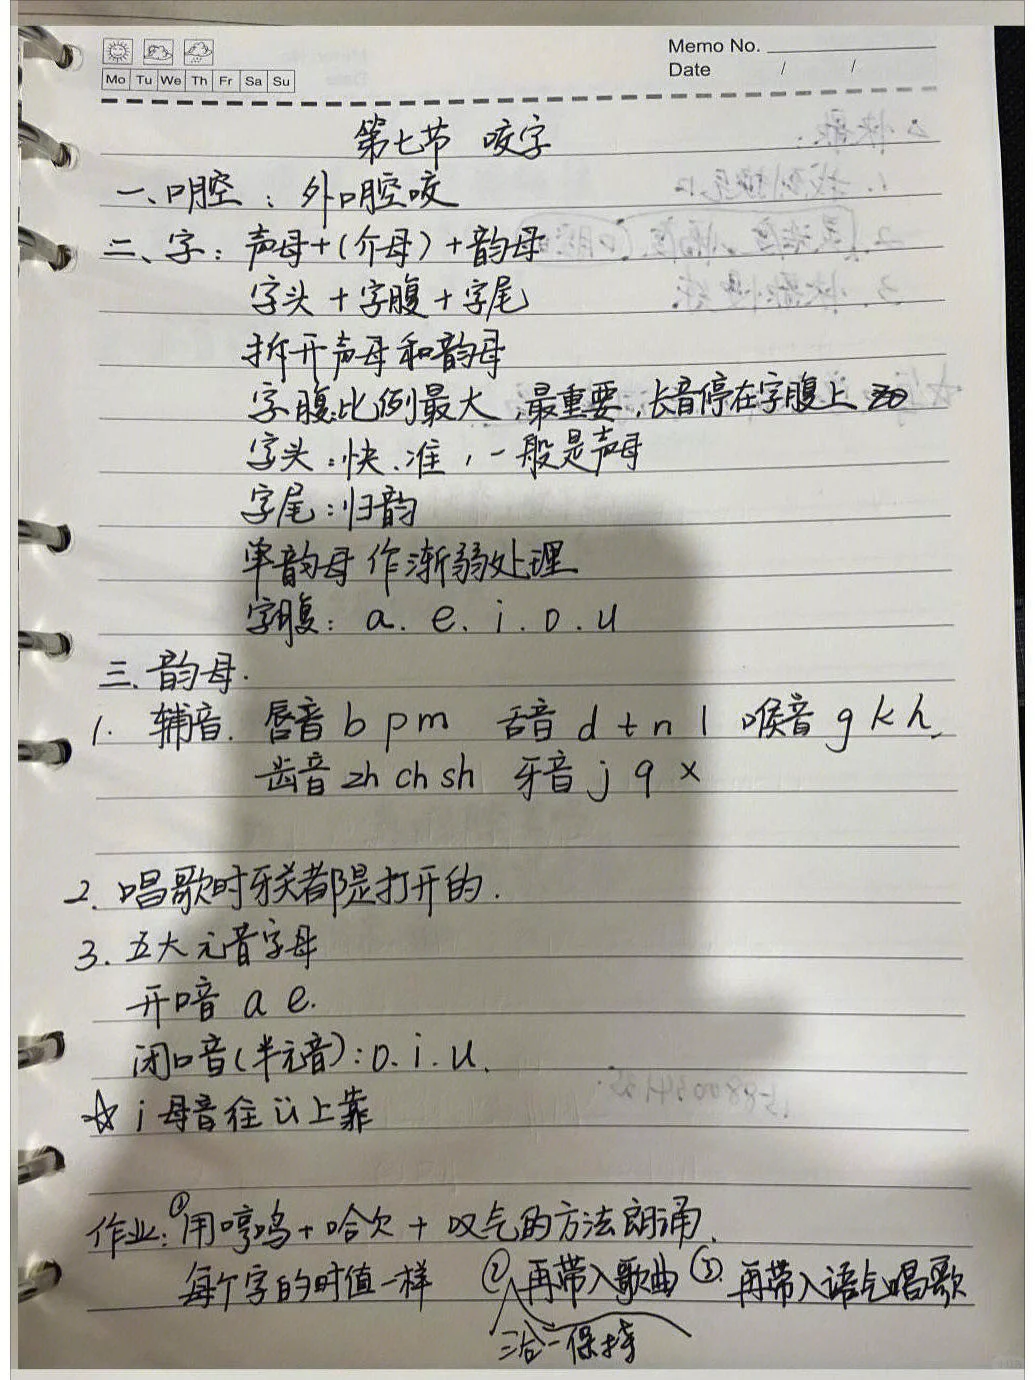 Memo No.
Mo Tu We Th Fr Sa Su
Date / /
第七节 咬字
一、口腔：外口腔咬
二、字：声母+(介母)+韵母
字头+字腹+字尾
拆开声母和韵母
字腹比例最大，最重要，长音停在字腹上
字头：快、准，一般是声母
字尾：归韵
单韵母作渐弱处理
字腹：a. e. i. o. u
三、韵母.
1. 辅音. 唇音 b p m 舌音 d t n l 喉音 g k h
齿音 zh ch sh 牙音 j q x
2. 唱歌时牙关都是打开的.
3. 五大元音字母
开口音 a e.
闭口音(半元音)：o. i. u.
☆ i 母音往ü上靠
作业：①用哼鸣+哈欠+叹气的方法朗诵.
每个字的时值一样 ②再带入歌曲 ③.再带入语气唱歌
三合一保持